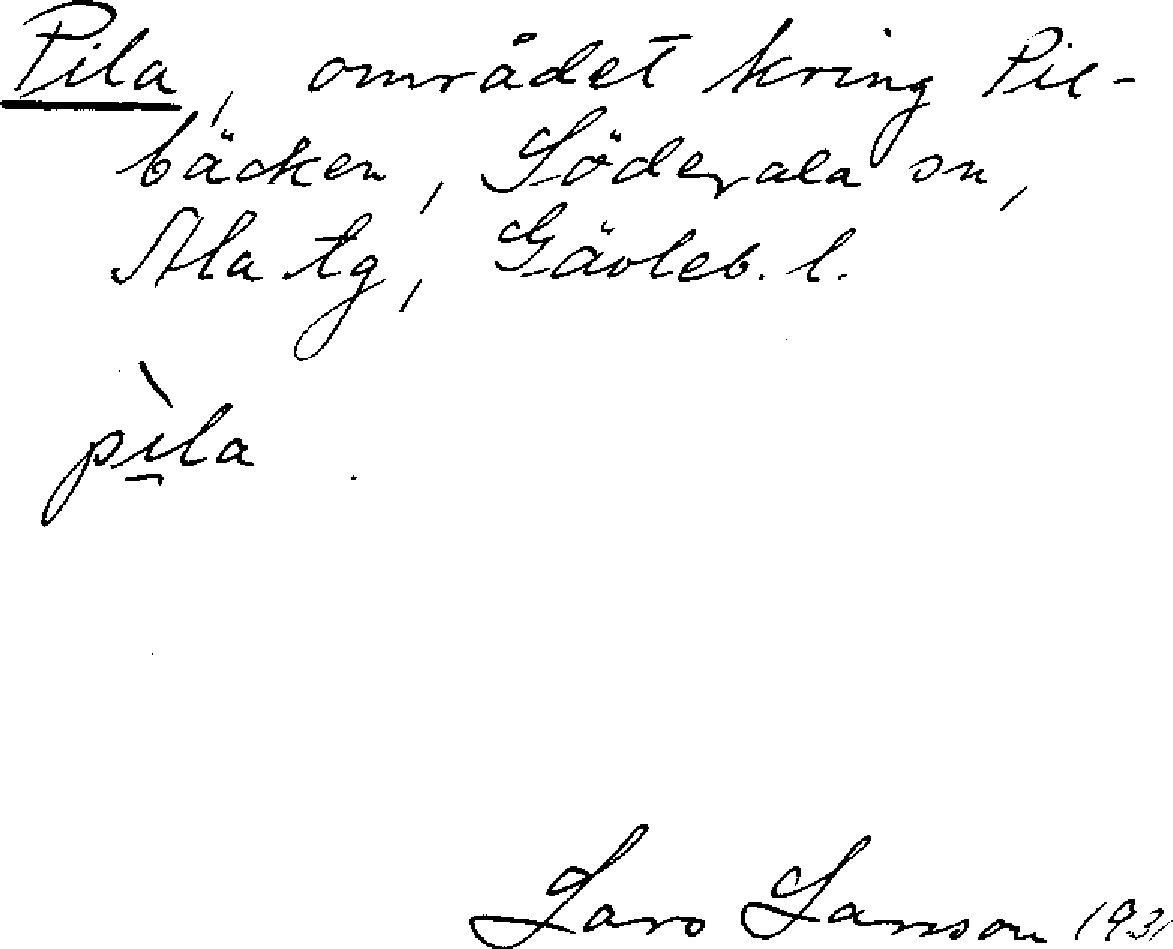 Pila, området kring Pil-
bäcken, Söderala sn,
Ala tg, Gävleb. l.
pìla
Lars Larsson 1931